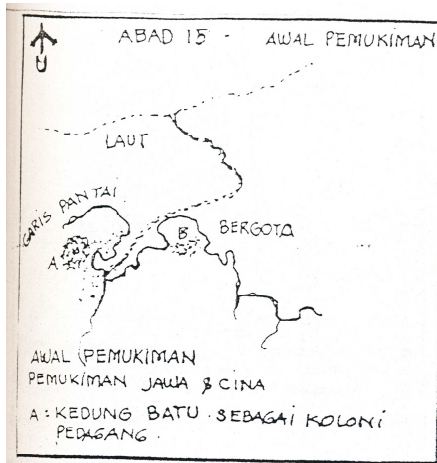 ABAD 15 - AWAL PEMUKIMAN
U
LAUT
GARIS PANTAI
BERGOTA
B
A
AWAL PEMUKIMAN
PEMUKIMAN JAWA & CINA
A : KEDUNG BATU . SEBAGAI KOLONI
PEDAGANG .